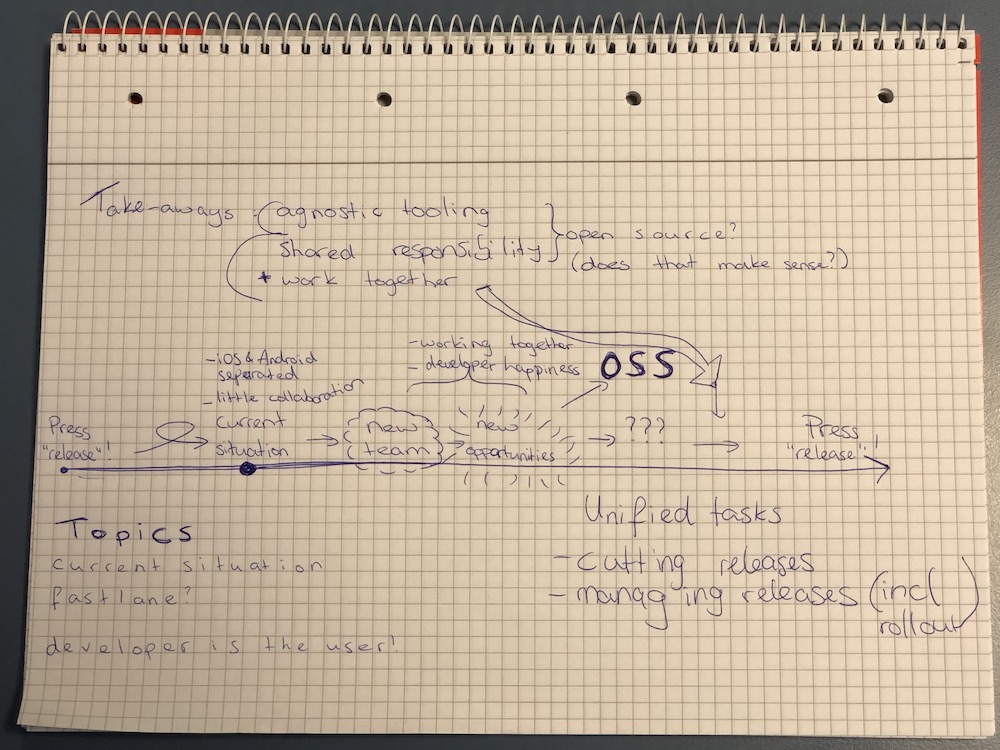 Take-aways: agnostic tooling
shared responsibility
* work together
open source?
(does that make sense?)
- iOS & Android
seperated
- little collaboration
- working together
- developer happiness
OSS
Press
"release"!
current
situation
new
team
new
opportunities
???
Press
"release"!
Topics
current situation
fastlane?
developer is the user!
Unified tasks
- cutting releases
- managing releases (incl
rollout)